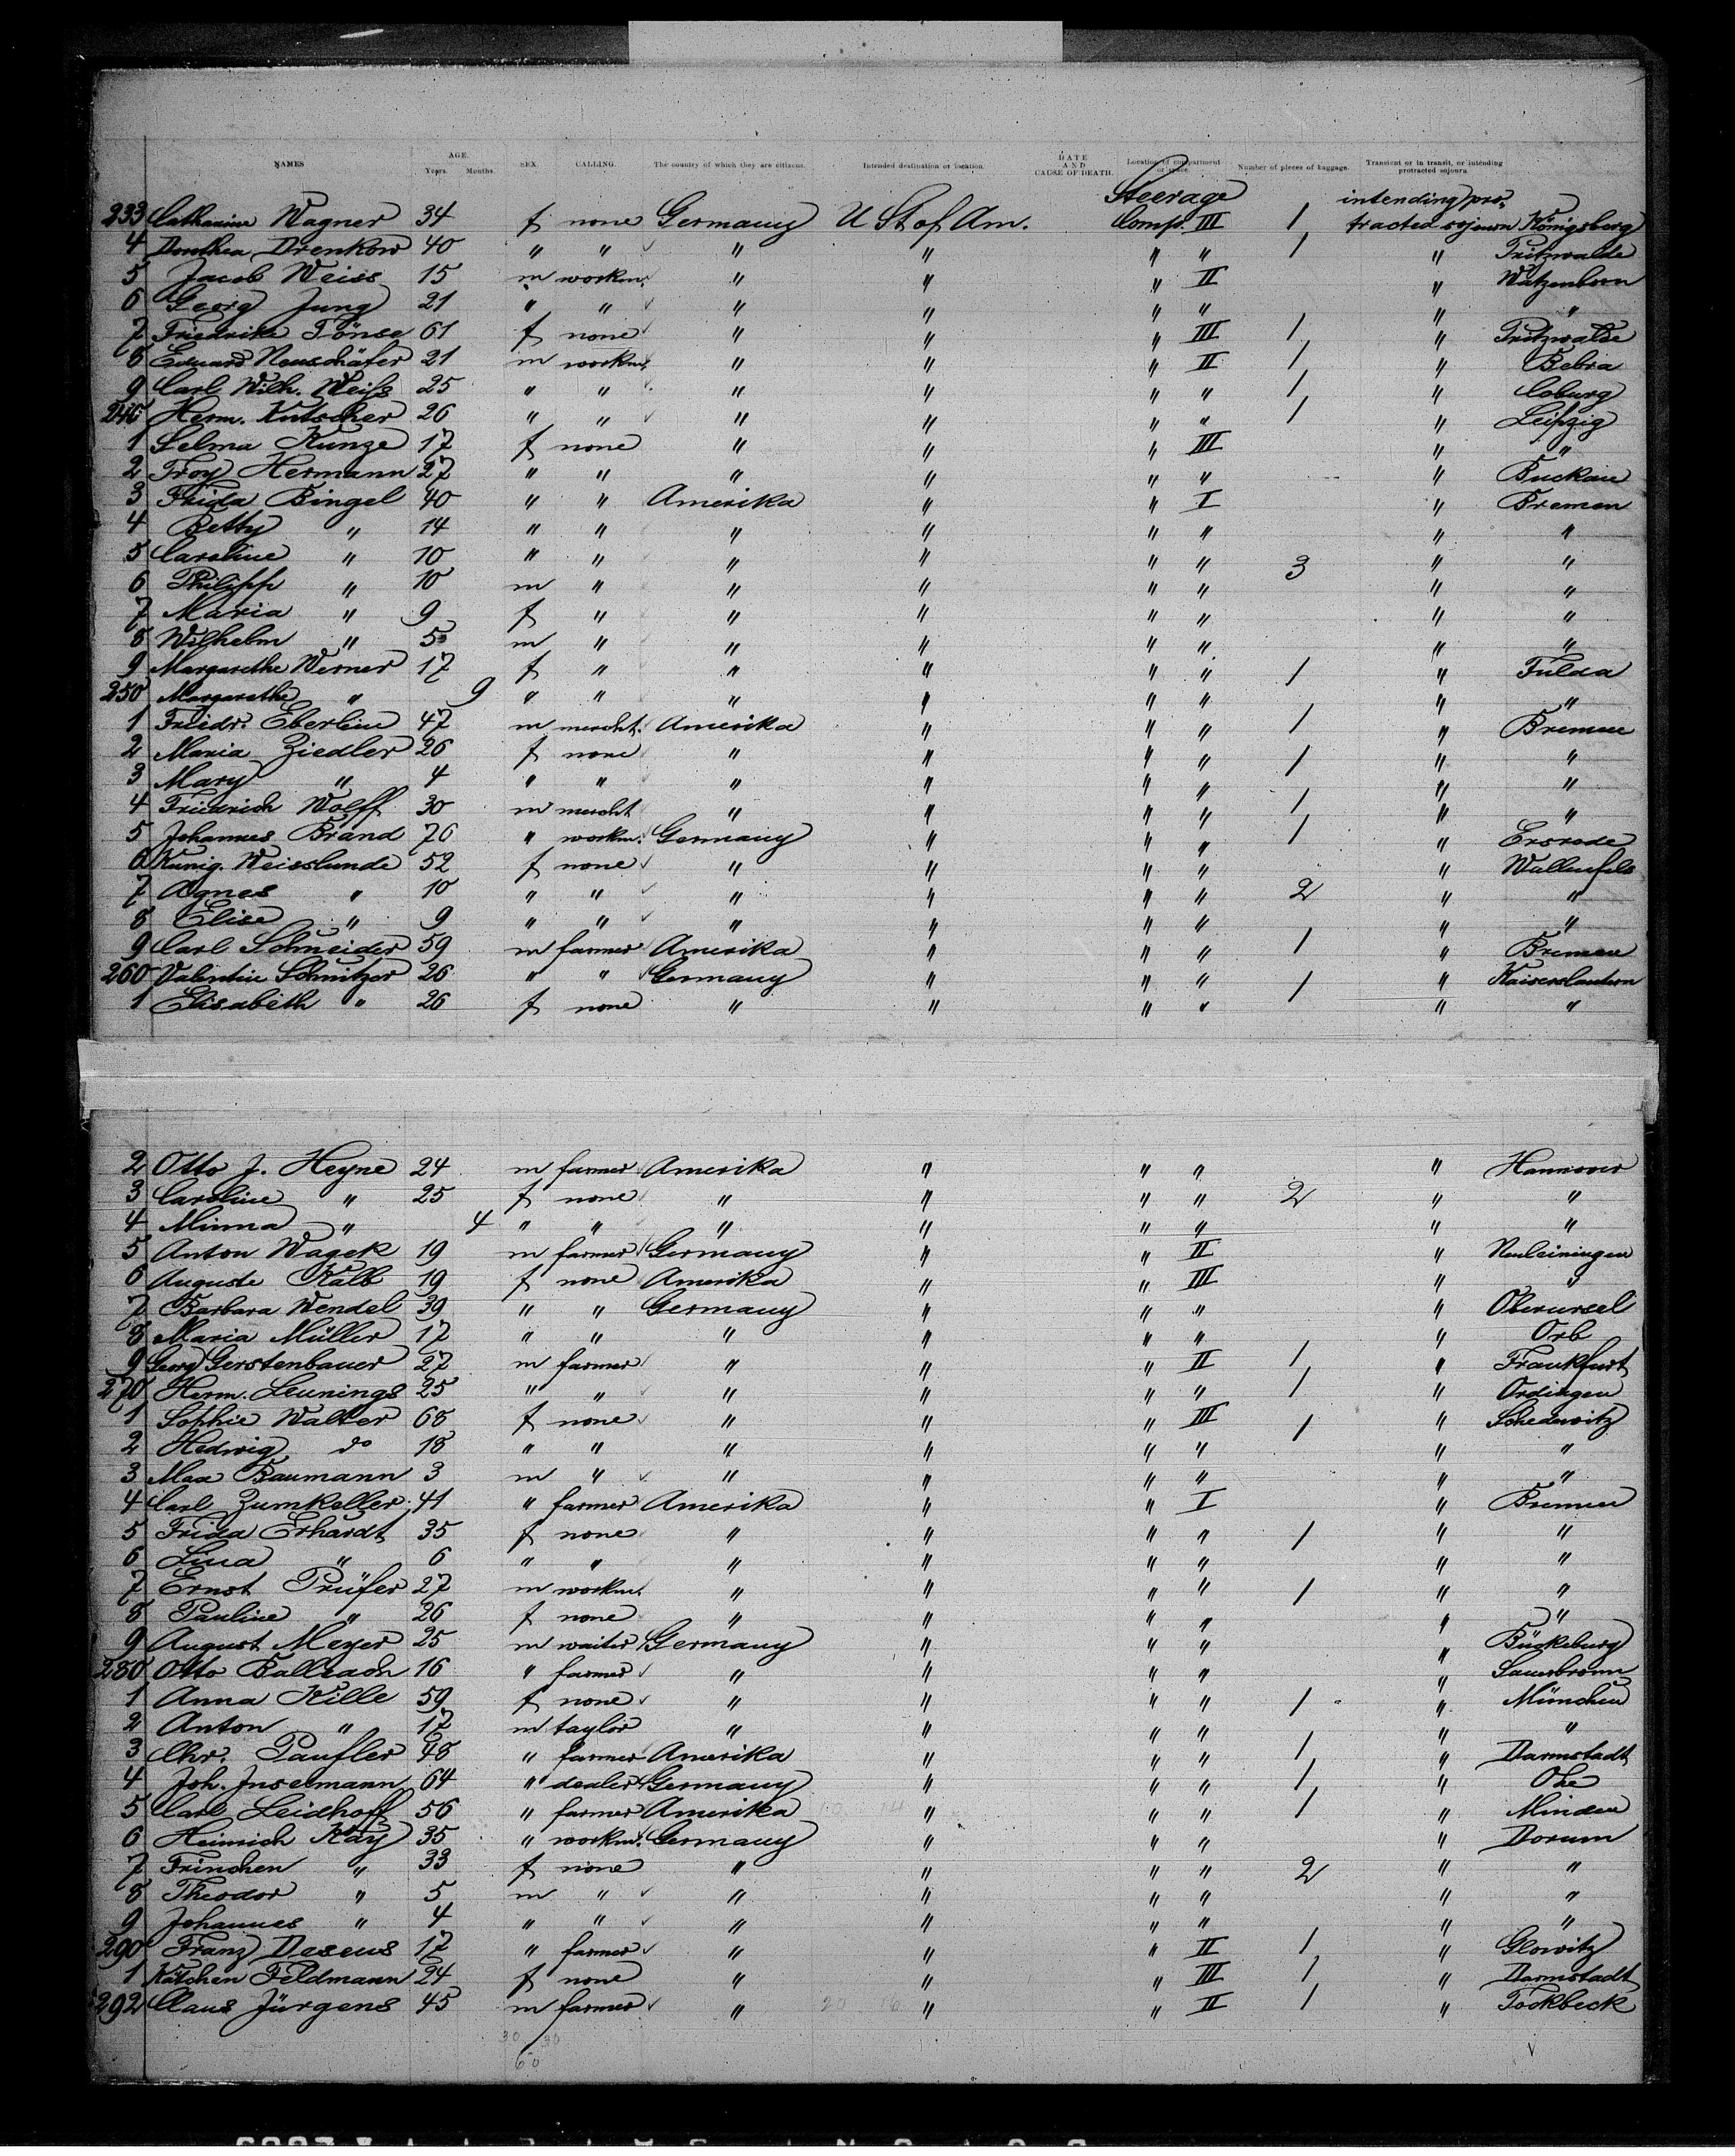 NAMES AGE. Years. Months. SEX. CALLING. The country of which they are citizens. Intended destination or location. DATE AND CAUSE OF DEATH. Location of compartment or space. Number of pieces of baggage. Transient or in transit, or intending protracted sojourn.
Steerage intending pro-
233 Catharine Wagner 34 f none Germany U St of Am. Comp. III 1 tracted sojourn Königsberg
4 Dorothea Drenkow 40 " " " " " " 1 " Pritzwalde
5 Jacob Weiss 15 m workm. " " " II " Watzenborn
6 Georg Jung 21 " " " " " " " "
7 Friedrike Tönse 61 f none " " " III 1 " Pritzwalde
8 Eduard Neuschäfer 21 m workm. " " " II 1 " Bebra
9 Carl Wilh. Weiß 25 " " " " " " 1 " Coburg
240 Herm. Kutscher 26 " " " " " " 1 " Leipzig
1 Selma Kunze 17 f none " " " III " "
2 Troy Hermann 27 " " " " " " " Buckau
3 Frida Bingel 40 " " Amerika " " I " Bremen
4 Betty " 14 " " " " " " " "
5 Caroline " 10 " " " " " " " "
6 Philipp " 10 m " " " " " 3 " "
7 Maria " 9 f " " " " " " "
8 Wilhelm " 5 m " " " " " " "
9 Margarethe Werner 17 f " " " " " 1 " Fulda
250 Margarethe " 9 " " " " " " " "
1 Friedr. Eberlin 47 m mercht. Amerika " " " 1 " Bremen
2 Maria Ziedler 26 f none " " " " 1 " "
3 Mary " 4 " " " " " " " "
4 Friedrich Wolff 30 m mercht " " " " 1 " "
5 Johannes Brand 76 " workm. Germany " " " 1 " Ersrode
6 Kunig. Weisslunde 52 f none " " " " " Wallenfels
7 Agnes " 10 " " " " " " 2 " "
8 Elise " 9 " " " " " " " "
9 Carl Schneider 59 m farmer Amerika " " " 1 " Bremen
260 Valentin Schnitzer 26 " " Germany " " " " Kaiserslautern
1 Elisabeth " 26 f none " " " " 1 " "
2 Otto J. Heyne 24 m farmer Amerika " " " " Hannover
3 Caroline " 25 f none " " " " 2 " "
4 Minna " 4 " " " " " " " "
5 Anton Wagek 19 m farmer Germany " " II " Neuleiningen
6 Auguste Kalb 19 f none Amerika " " III " "
7 Barbara Wendel 39 " " Germany " " " " Oberursel
8 Maria Müller 17 " " " " " " " Orb
9 Georg Gerstenbauer 27 m farmer " " " II 1 " Frankfurt
270 Herm. Leunings 25 " " " " " " 1 " Ordingen
1 Sophie Walter 68 f none " " " III 1 " Schedewitz
2 Hedwig do 18 " " " " " " " "
3 Max Baumann 3 m " " " " " " "
4 Carl Zumkeller 41 " farmer Amerika " " I " Bremen
5 Frida Erhardt 35 f none " " " " 1 " "
6 Lina " 6 " " " " " " " "
7 Ernst Prüfer 27 m workm. " " " " 1 " "
8 Pauline " 26 f none " " " " " "
9 August Meyer 25 m waiter Germany " " " " Bückeburg
280 Otto Ballrach 16 " farmer " " " " " Sauerbronn
1 Anna Kille 59 f none " " " " 1 " München
2 Anton " 17 m taylor " " " " " "
3 Chr. Paufler 48 " farmer Amerika " " " 1 " Darmstadt
4 Joh. Inselmann 64 " dealer Germany " " " 1 " Ohe
5 Carl Leidhoff 56 " farmer Amerika " " " 1 " Minden
6 Heinrich Kay 35 " workm. Germany " " " " Dorum
7 Trinchen " 33 f none " " " " 2 " "
8 Theodor " 5 m " " " " " " "
9 Johannes " 4 " " " " " " " "
290 Franz Deseus 17 " farmer " " " II 1 " Glowitz
1 Kätchen Feldmann 24 f none " " " III 1 " Darmstadt
292 Claus Jürgens 45 m farmer " " " II 1 " Tockbeck
30 30
60